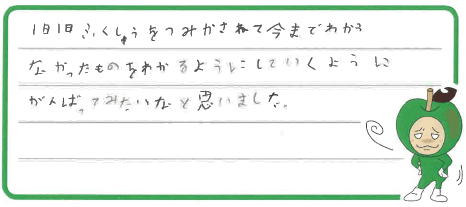 1日1日ふくしゅうをつみかさねて今までわから
なかったものをわかるようにしていくように
がんばってみたいなと思いました。